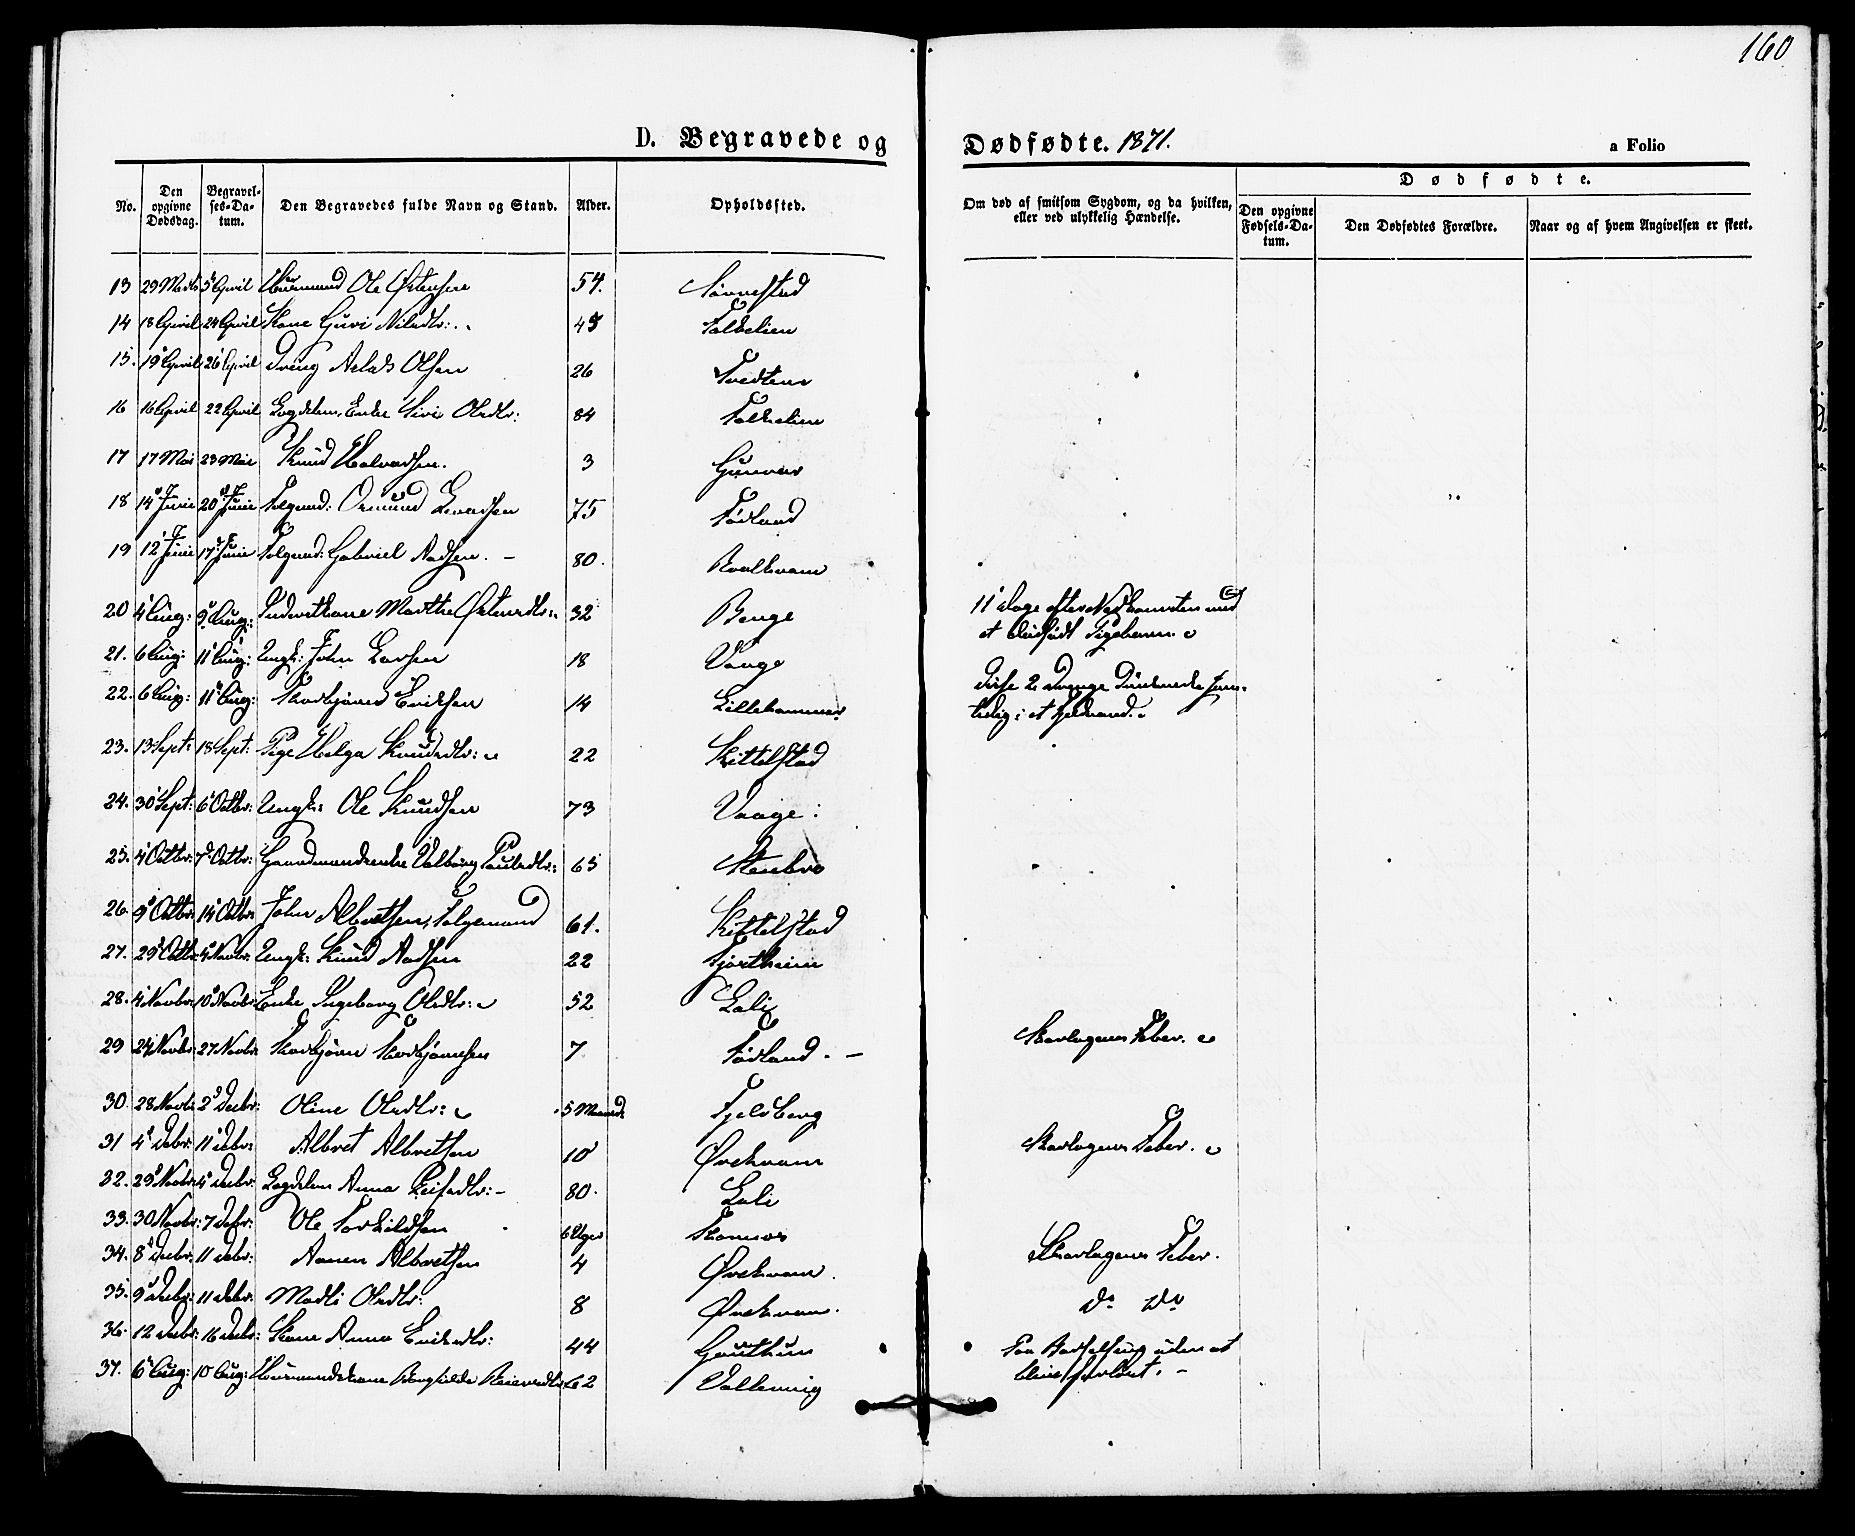 160
D. Begravede og Dødfødte. 1871.
a Folio
No.
Den opgivne Dødsdag.
Begravelses-Datum.
Den Begravedes fulde Navn og Stand.
Alder.
Opholdssted.
Om død af smitsom Sygdom, og da hvilken, eller ved ulykkelig Hændelse.
Dødfødte.
Den opgivne Fødsels-Datum.
Den Dødfødtes Forældre.
Naar og af hvem Angivelsen er skeet.
13 29 Marts 5 April Huusmand Ole Østensen 54.
14 18 April 24 April Kone Guri Nilsdtr: 45
15. 19 April 26 April Dreng Aslak Olsen 26 Tvedten
16 16 April 22 April Lægdslem, Enke Siri Olsdtr: 84
17 17 Mai 23 Mai Knud Halvorsen. 3
18 14 Juni 20 Juni Folgemd: Ormund 75 Fødland
19 12 Juni 17 Juni Folgemd: Gabriel Aadsen. 80. Roalkvam
20 4 Aug: 9 Aug: Inderstkone Marthe Østensdtr: 32 Berge 11 Dage efter Nedkomsten med
et dødfødt Pigebarn.
21. 6 Aug: 11 Aug: Ungk: John Larsen 18 Vaage Disse 2 Drenge druknede sam-
22. 6 Aug: 11 Aug: Thorbjørn Eriksen 14 Lillehammer tidig i et Fjeldvand.
23. 13 Sept: 18 Sept: Pige Helga Knudsdtr: 22 Kittelstad
24. 30 Sept: 6 Octbr: Ungk: Ole Knudsen 73 Vaage:
25. 4 Octbr: 7 Octbr: Gaardmandsenke Valborg Poulsdtr: 65 Stenbro
26. 9 Octbr: 14 Octbr: John Albretsen, Folgemand 61. Kittelstad
27. 29 Octbr: 4 Novbr: Ungk: Knud Aadsen 22 Fjortheim
28. 4 Novbr: 10 Novbr: Enke Ingeborg Olsdtr: 52 Lali
29 24 Novbr: 27 Novbr: Thorbjørn Thorbjørnsen 7 Fødland. - Skarlagens Feber.
30. 28 Novbr: 2 Decbr: Oline Olsdtr: 5 Maaned: Fjelberg
31 4 Decbr: 11 Decbr: Albret Albretsen 10 Øvekvam Skarlagens Feber.
32. 29 Novbr: 4 Decbr: Lægdslem Anna Leifsdtr: 80. Lali
33. 30 Novbr: 7 Decbr: Ole Torkildsen 6 Uger
34. 8 Decbr: 11 Decbr: Aanen Albretsen 4 Øvekvam. Skarlagens Feber.
35. 9 Decbr: 11 Decbr: Marthe Olsdtr: 8 Øvekvam. Do Do
36. 12 Decbr: 16 Decbr: Kone Anna Eriksdtr: 44 Gauthun Paa Barselseng uden at
blive forløst. -
37. 6 Aug: 10 Aug: Huusmandskone Ragnhilde Reiersdtr: 62